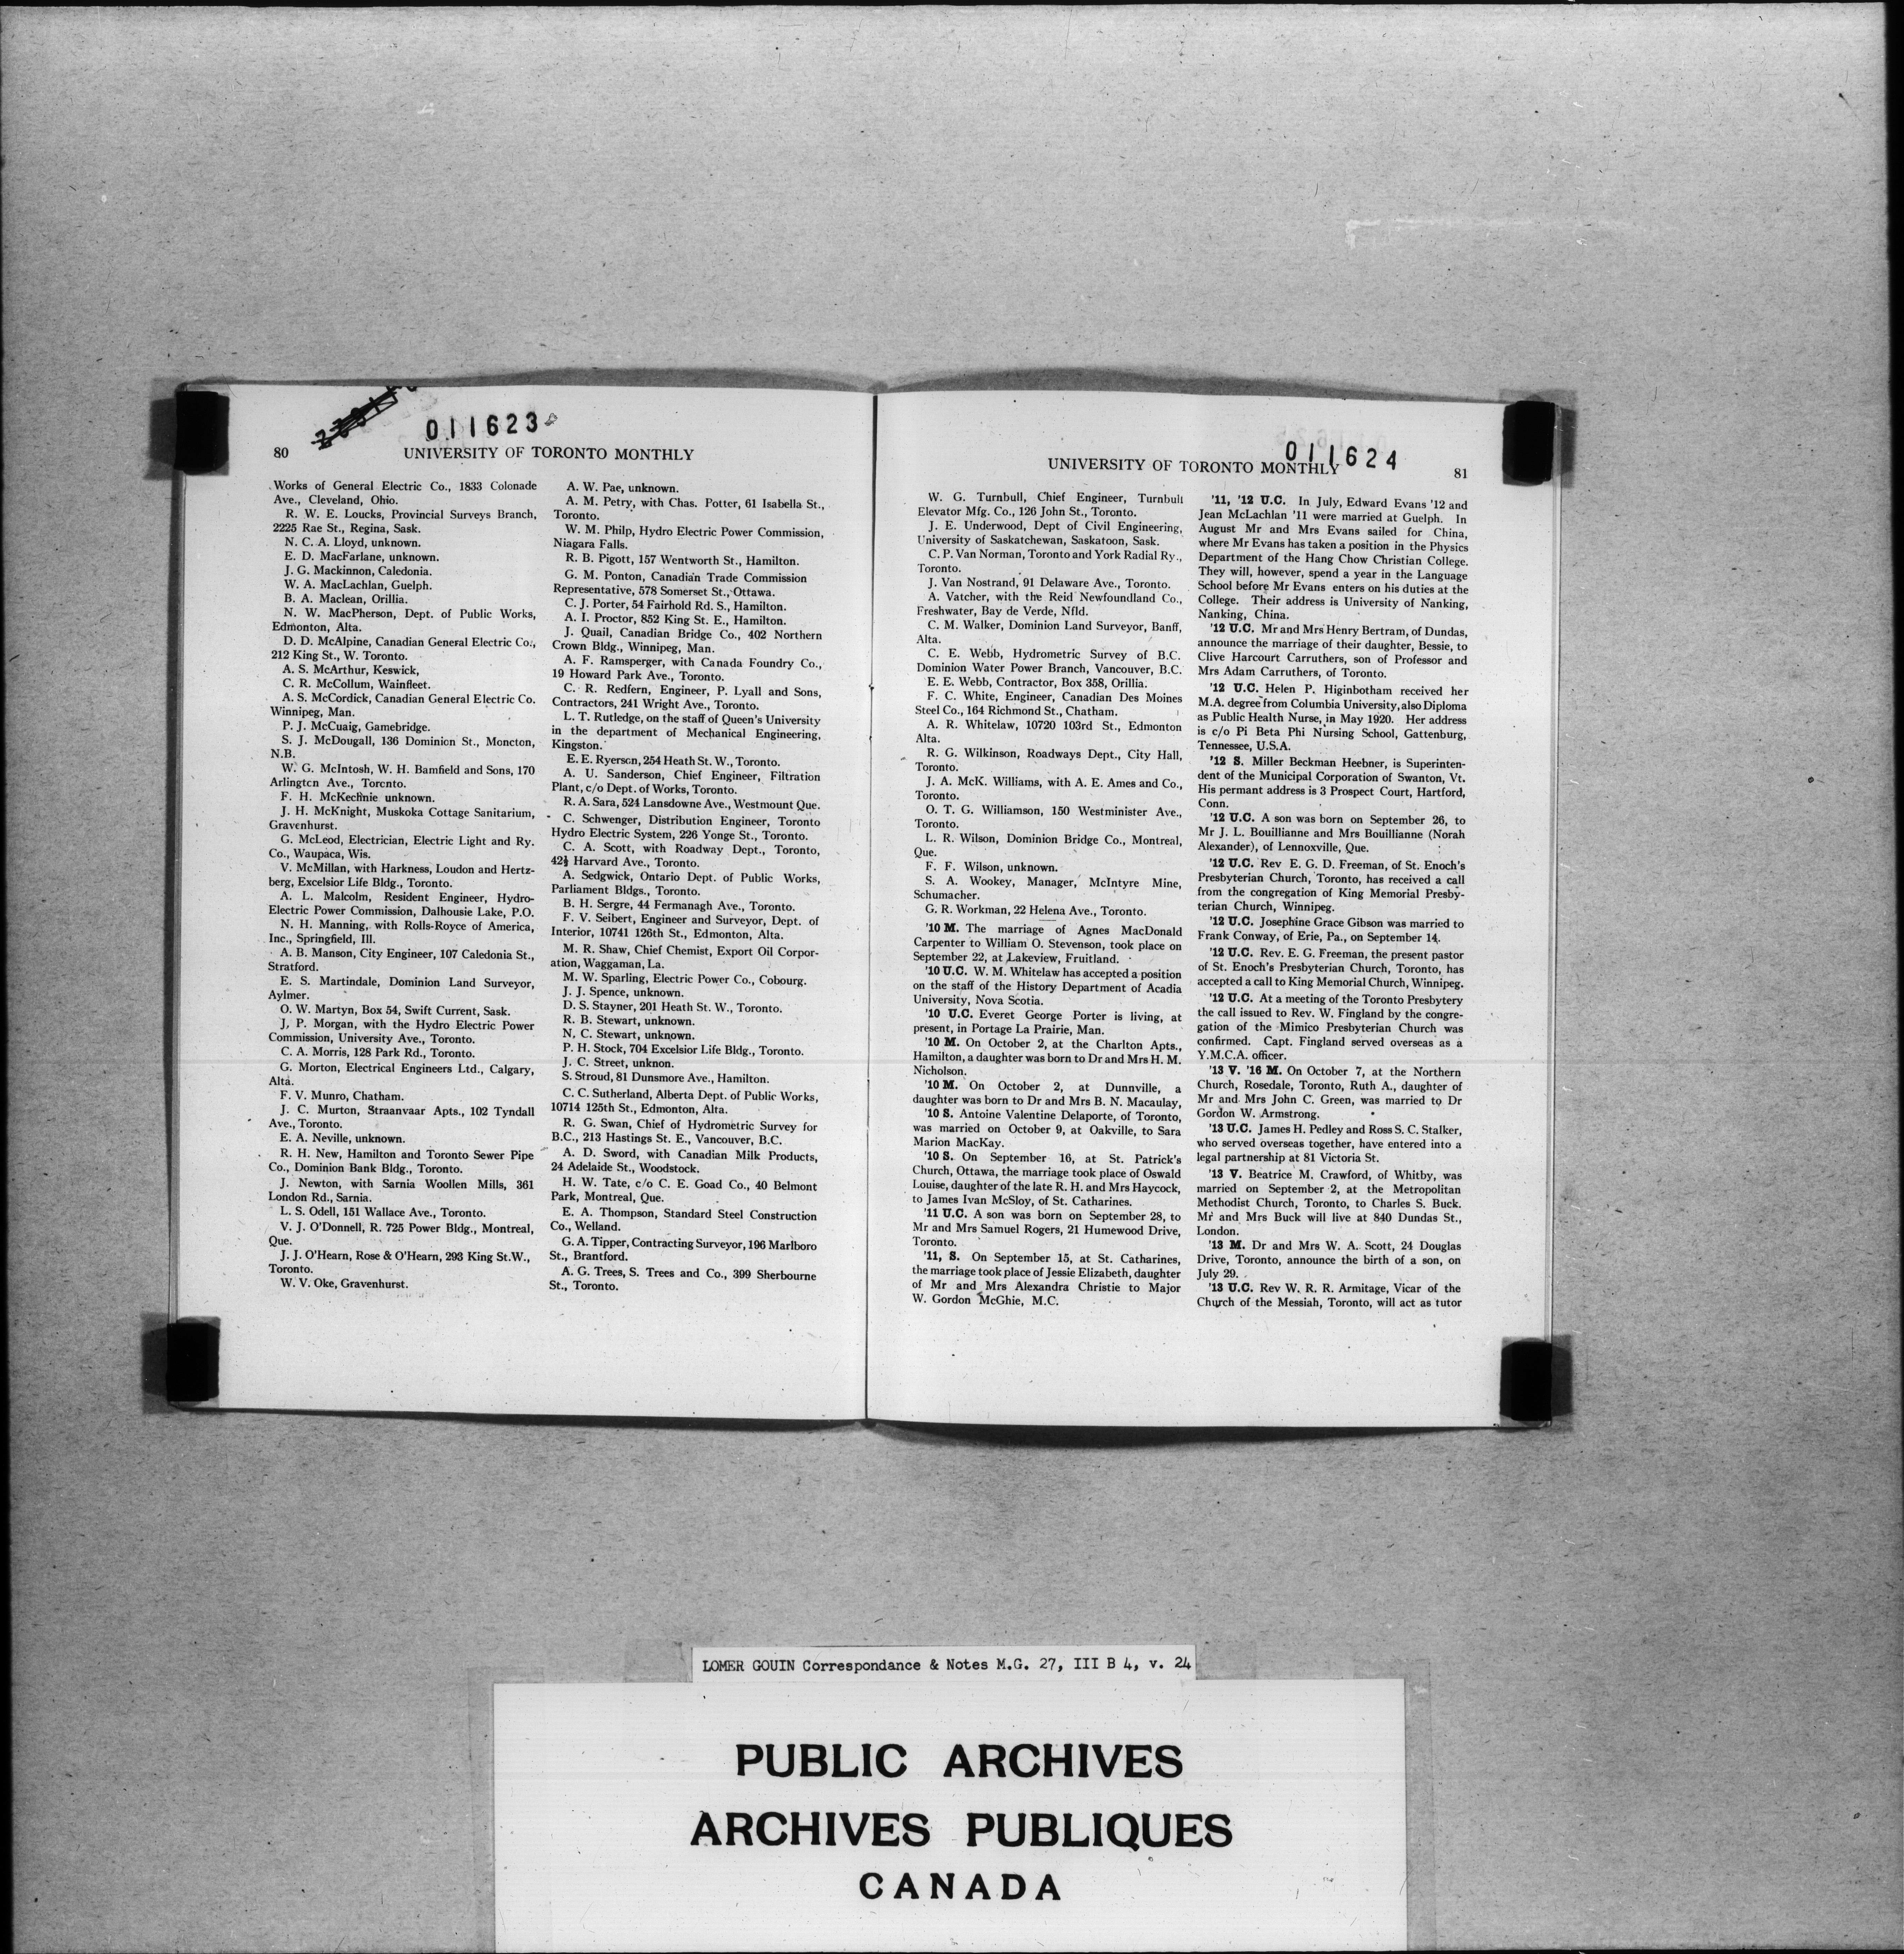 011623
80
UNIVERSITY OF TORONTO MONTHLY
Works of General Electric Co., 1833 Colonade
Ave., Cleveland, Ohio.
R. W. E. Loucks, Provincial Surveys Branch,
2225 Rae St., Regina, Sask.
N. C. A. Lloyd, unknown.
E. D. MacFarlane, unknown.
J. G. Mackinnon, Caledonia.
W. A. MacLachlan, Guelph.
B. A. Maclean, Orillia.
N. W. MacPherson, Dept. of Public Works,
Edmonton, Alta.
D. D. McAlpine, Canadian General Electric Co.,
212 King St., W. Toronto.
A. S. McArthur, Keswick,
C. R. McCollum, Wainfleet.
A. S. McCordick, Canadian General Electric Co.
Winnipeg, Man.
P. J. McCuaig, Gamebridge.
S. J. McDougall, 136 Dominion St., Moncton,
N.B.
W. G. McIntosh, W. H. Bamfield and Sons, 170
Arlington Ave., Toronto.
F. H. McKechnie unknown.
J. H. McKnight, Muskoka Cottage Sanitarium,
Gravenhurst.
G. McLeod, Electrician, Electric Light and Ry.
Co., Waupaca, Wis.
V. McMillan, with Harkness, Loudon and Hertz-
berg, Excelsior Life Bldg., Toronto.
A. L. Malcolm, Resident Engineer, Hydro-
Electric Power Commission, Dalhousie Lake, P.O.
N. H. Manning, with Rolls-Royce of America,
Inc., Springfield, Ill.
A. B. Manson, City Engineer, 107 Caledonia St.,
Stratford.
E. S. Martindale, Dominion Land Surveyor,
Aylmer.
O. W. Martyn, Box 54, Swift Current, Sask.
J. P. Morgan, with the Hydro Electric Power
Commission, University Ave., Toronto.
C. A. Morris, 128 Park Rd., Toronto.
G. Morton, Electrical Engineers Ltd., Calgary,
Alta.
F. V. Munro, Chatham.
J. C. Murton, Straanvaar Apts., 102 Tyndall
Ave., Toronto.
E. A. Neville, unknown.
R. H. New, Hamilton and Toronto Sewer Pipe
Co., Dominion Bank Bldg., Toronto.
J. Newton, with Sarnia Woollen Mills, 361
London Rd., Sarnia.
L. S. Odell, 151 Wallace Ave., Toronto.
V. J. O'Donnell, R. 725 Power Bldg., Montreal,
Que.
J. J. O'Hearn, Rose & O'Hearn, 293 King St.W.,
Toronto.
W. V. Oke, Gravenhurst.
A. W. Pae, unknown.
A. M. Petry, with Chas. Potter, 61 Isabella St.,
Toronto.
W. M. Philp, Hydro Electric Power Commission,
Niagara Falls.
R. B. Pigott, 157 Wentworth St., Hamilton.
G. M. Ponton, Canadian Trade Commission
Representative, 578 Somerset St., Ottawa.
C. J. Porter, 54 Fairhold Rd. S., Hamilton.
A. I. Proctor, 852 King St. E., Hamilton.
J. Quail, Canadian Bridge Co., 402 Northern
Crown Bldg., Winnipeg, Man.
A. F. Ramsperger, with Canada Foundry Co.,
19 Howard Park Ave., Toronto.
C. R. Redfern, Engineer, P. Lyall and Sons,
Contractors, 241 Wright Ave., Toronto.
L. T. Rutledge, on the staff of Queen's University
in the department of Mechanical Engineering,
Kingston.
E. E. Ryerson, 254 Heath St. W., Toronto.
A. U. Sanderson, Chief Engineer, Filtration
Plant, c/o Dept. of Works, Toronto.
R. A. Sara, 524 Lansdowne Ave., Westmount Que.
C. Schwenger, Distribution Engineer, Toronto
Hydro Electric System, 226 Yonge St., Toronto.
C. A. Scott, with Roadway Dept., Toronto,
42½ Harvard Ave., Toronto.
A. Sedgwick, Ontario Dept. of Public Works,
Parliament Bldgs., Toronto.
B. H. Sergre, 44 Fermanagh Ave., Toronto.
F. V. Seibert, Engineer and Surveyor, Dept. of
Interior, 10741 126th St., Edmonton, Alta.
M. R. Shaw, Chief Chemist, Export Oil Corpor-
ation, Waggaman, La.
M. W. Sparling, Electric Power Co., Cobourg.
J. J. Spence, unknown.
D. S. Stayner, 201 Heath St. W., Toronto.
R. B. Stewart, unknown.
N. C. Stewart, unknown.
P. H. Stock, 704 Excelsior Life Bldg., Toronto.
J. C. Street, unknon.
S. Stroud, 81 Dunsmore Ave., Hamilton.
C. C. Sutherland, Alberta Dept. of Public Works,
10714 125th St., Edmonton, Alta.
R. G. Swan, Chief of Hydrometric Survey for
B.C., 213 Hastings St. E., Vancouver, B.C.
A. D. Sword, with Canadian Milk Products,
24 Adelaide St., Woodstock.
H. W. Tate, c/o C. E. Goad Co., 40 Belmont
Park, Montreal, Que.
E. A. Thompson, Standard Steel Construction
Co., Welland.
G. A. Tipper, Contracting Surveyor, 196 Marlboro
St., Brantford.
A. G. Trees, S. Trees and Co., 399 Sherbourne
St., Toronto.
011624
UNIVERSITY OF TORONTO MONTHLY
81
W. G. Turnbull, Chief Engineer, Turnbull
Elevator Mfg. Co., 126 John St., Toronto.
J. E. Underwood, Dept of Civil Engineering,
University of Saskatchewan, Saskatoon, Sask.
C. P. Van Norman, Toronto and York Radial Ry.,
Toronto.
J. Van Nostrand, 91 Delaware Ave., Toronto.
A. Vatcher, with the Reid Newfoundland Co.,
Freshwater, Bay de Verde, Nfld.
C. M. Walker, Dominion Land Surveyor, Banff,
Alta.
C. E. Webb, Hydrometric Survey of B.C.
Dominion Water Power Branch, Vancouver, B.C.
E. E. Webb, Contractor, Box 358, Orillia.
F. C. White, Engineer, Canadian Des Moines
Steel Co., 164 Richmond St., Chatham.
A. R. Whitelaw, 10720 103rd St., Edmonton
Alta.
R. G. Wilkinson, Roadways Dept., City Hall,
Toronto.
J. A. McK. Williams, with A. E. Ames and Co.,
Toronto.
O. T. G. Williamson, 150 Westminister Ave.,
Toronto.
L. R. Wilson, Dominion Bridge Co., Montreal,
Que.
F. F. Wilson, unknown.
S. A. Wookey, Manager, McIntyre Mine,
Schumacher.
G. R. Workman, 22 Helena Ave., Toronto.
'10 M. The marriage of Agnes MacDonald
Carpenter to William O. Stevenson, took place on
September 22, at Lakeview, Fruitland.
'10 U.C. W. M. Whitelaw has accepted a position
on the staff of the History Department of Acadia
University, Nova Scotia.
'10 U.C. Everet George Porter is living, at
present, in Portage La Prairie, Man.
'10 M. On October 2, at the Charlton Apts.,
Hamilton, a daughter was born to Dr and Mrs H. M.
Nicholson.
'10 M. On October 2, at Dunnville, a
daughter was born to Dr and Mrs B. N. Macaulay,
'10 S. Antoine Valentine Delaporte, of Toronto,
was married on October 9, at Oakville, to Sara
Marion MacKay.
'10 S. On September 16, at St. Patrick's
Church, Ottawa, the marriage took place of Oswald
Louise, daughter of the late R. H. and Mrs Haycock,
to James Ivan McSloy, of St. Catharines.
'11 U.C. A son was born on September 28, to
Mr and Mrs Samuel Rogers, 21 Humewood Drive,
Toronto.
'11, S. On September 15, at St. Catharines,
the marriage took place of Jessie Elizabeth, daughter
of Mr and Mrs Alexandra Christie to Major
W. Gordon McGhie, M.C.
'11, '12 U.C. In July, Edward Evans '12 and
Jean McLachlan '11 were married at Guelph. In
August Mr and Mrs Evans sailed for China,
where Mr Evans has taken a position in the Physics
Department of the Hang Chow Christian College.
They will, however, spend a year in the Language
School before Mr Evans enters on his duties at the
College. Their address is University of Nanking,
Nanking, China.
'12 U.C. Mr and Mrs Henry Bertram, of Dundas,
announce the marriage of their daughter, Bessie, to
Clive Harcourt Carruthers, son of Professor and
Mrs Adam Carruthers, of Toronto.
'12 U.C. Helen P. Higinbotham received her
M.A. degree from Columbia University, also Diploma
as Public Health Nurse, in May 1920. Her address
is c/o Pi Beta Phi Nursing School, Gattenburg,
Tennessee, U.S.A.
'12 S. Miller Beckman Heebner, is Superinten-
dent of the Municipal Corporation of Swanton, Vt.
His permant address is 3 Prospect Court, Hartford,
Conn.
'12 U.C. A son was born on September 26, to
Mr J. L. Bouillianne and Mrs Bouillianne (Norah
Alexander), of Lennoxville, Que.
'12 U.C. Rev E. G. D. Freeman, of St. Enoch's
Presbyterian Church, Toronto, has received a call
from the congregation of King Memorial Presby-
terian Church, Winnipeg.
'12 U.C. Josephine Grace Gibson was married to
Frank Conway, of Erie, Pa., on September 14.
'12 U.C. Rev. E. G. Freeman, the present pastor
of St. Enoch's Presbyterian Church, Toronto, has
accepted a call to King Memorial Church, Winnipeg.
'12 U.C. At a meeting of the Toronto Presbytery
the call issued to Rev. W. Fingland by the congre-
gation of the Mimico Presbyterian Church was
confirmed. Capt. Fingland served overseas as a
Y.M.C.A. officer.
'13 V. '16 M. On October 7, at the Northern
Church, Rosedale, Toronto, Ruth A., daughter of
Mr and Mrs John C. Green, was married to Dr
Gordon W. Armstrong.
'13 U.C. James H. Pedley and Ross S. C. Stalker,
who served overseas together, have entered into a
legal partnership at 81 Victoria St.
'13 V. Beatrice M. Crawford, of Whitby, was
married on September 2, at the Metropolitan
Methodist Church, Toronto, to Charles S. Buck.
Mr and Mrs Buck will live at 840 Dundas St.,
London.
'13 M. Dr and Mrs W. A. Scott, 24 Douglas
Drive, Toronto, announce the birth of a son, on
July 29.
'13 U.C. Rev W. R. R. Armitage, Vicar of the
Church of the Messiah, Toronto, will act as tutor
LOMER GOUIN Correspondance & Notes M.G. 27, III B 4, v. 24
PUBLIC ARCHIVES
ARCHIVES PUBLIQUES
CANADA